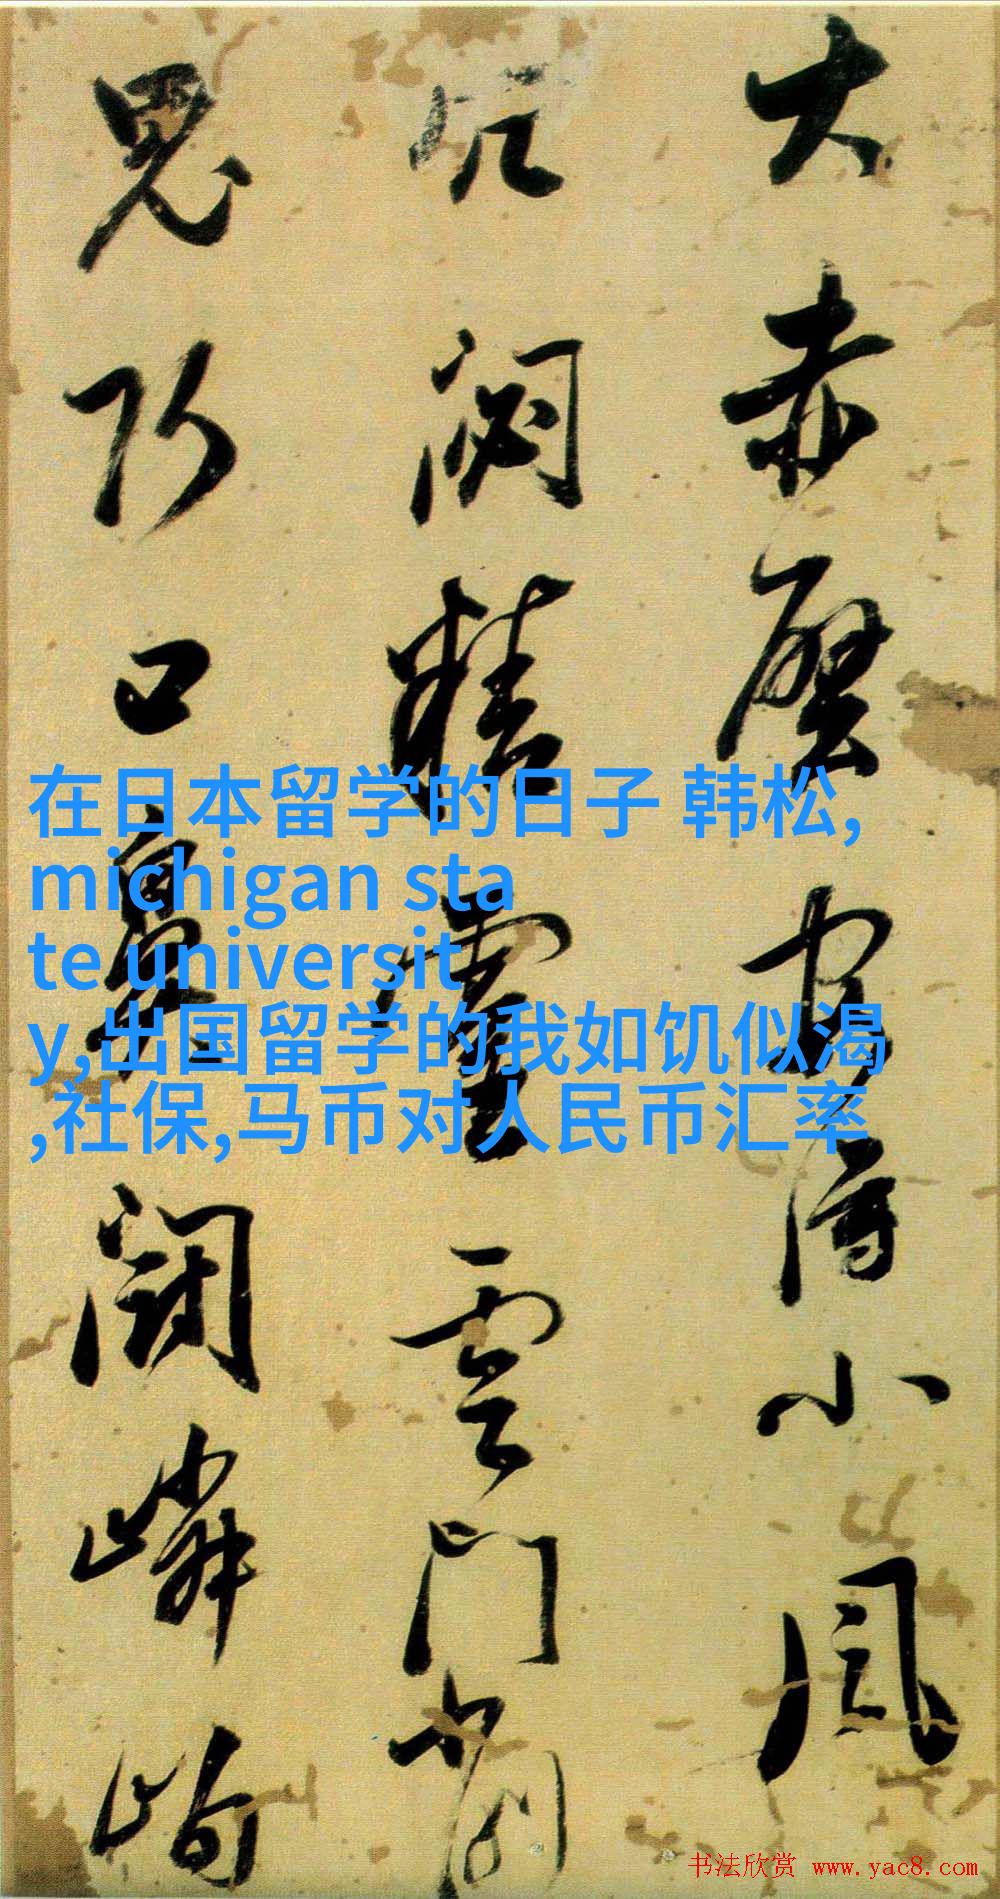 大赤壁小風
精靈雲門
口鼻嶙峋
在日本留学的日子 韩松,
michigan sta
te universit
y,出国留学的我如饥似渴
,社保,马币对人民币汇率
书法欣赏 www.yac8.com